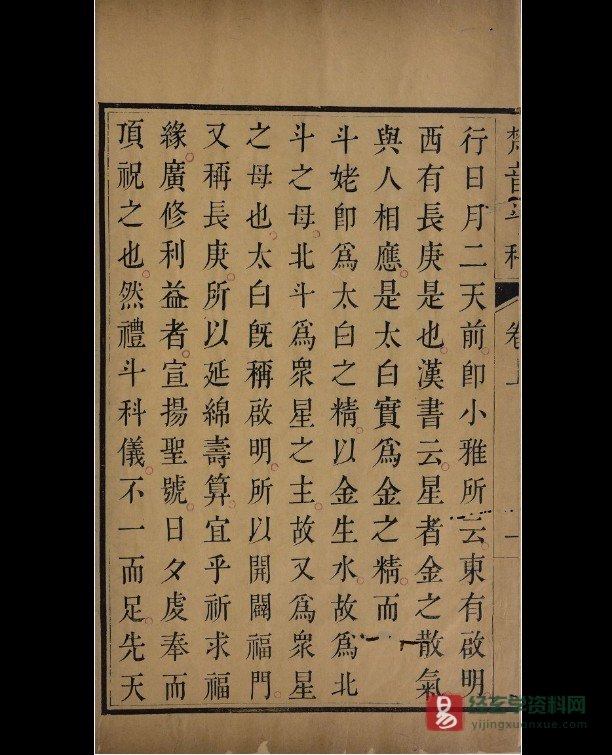 梵音斗科
卷上
一
行日月二天前即小雅所云東有啟明
西有長庚是也漢書云星者金之散氣
與人相應是太白實為金之精而
斗姥即為太白之精以金生水故為北
斗之母北斗為眾星之主故又為眾星
之母也太白既稱啟明所以開闢福門
又稱長庚所以延綿壽算宜乎祈求福
緣廣修利益者宣揚聖號日夕虔奉而
頂祝之也然禮斗科儀不一而足先天
易
经玄学资料网
yijingxuanxue.com